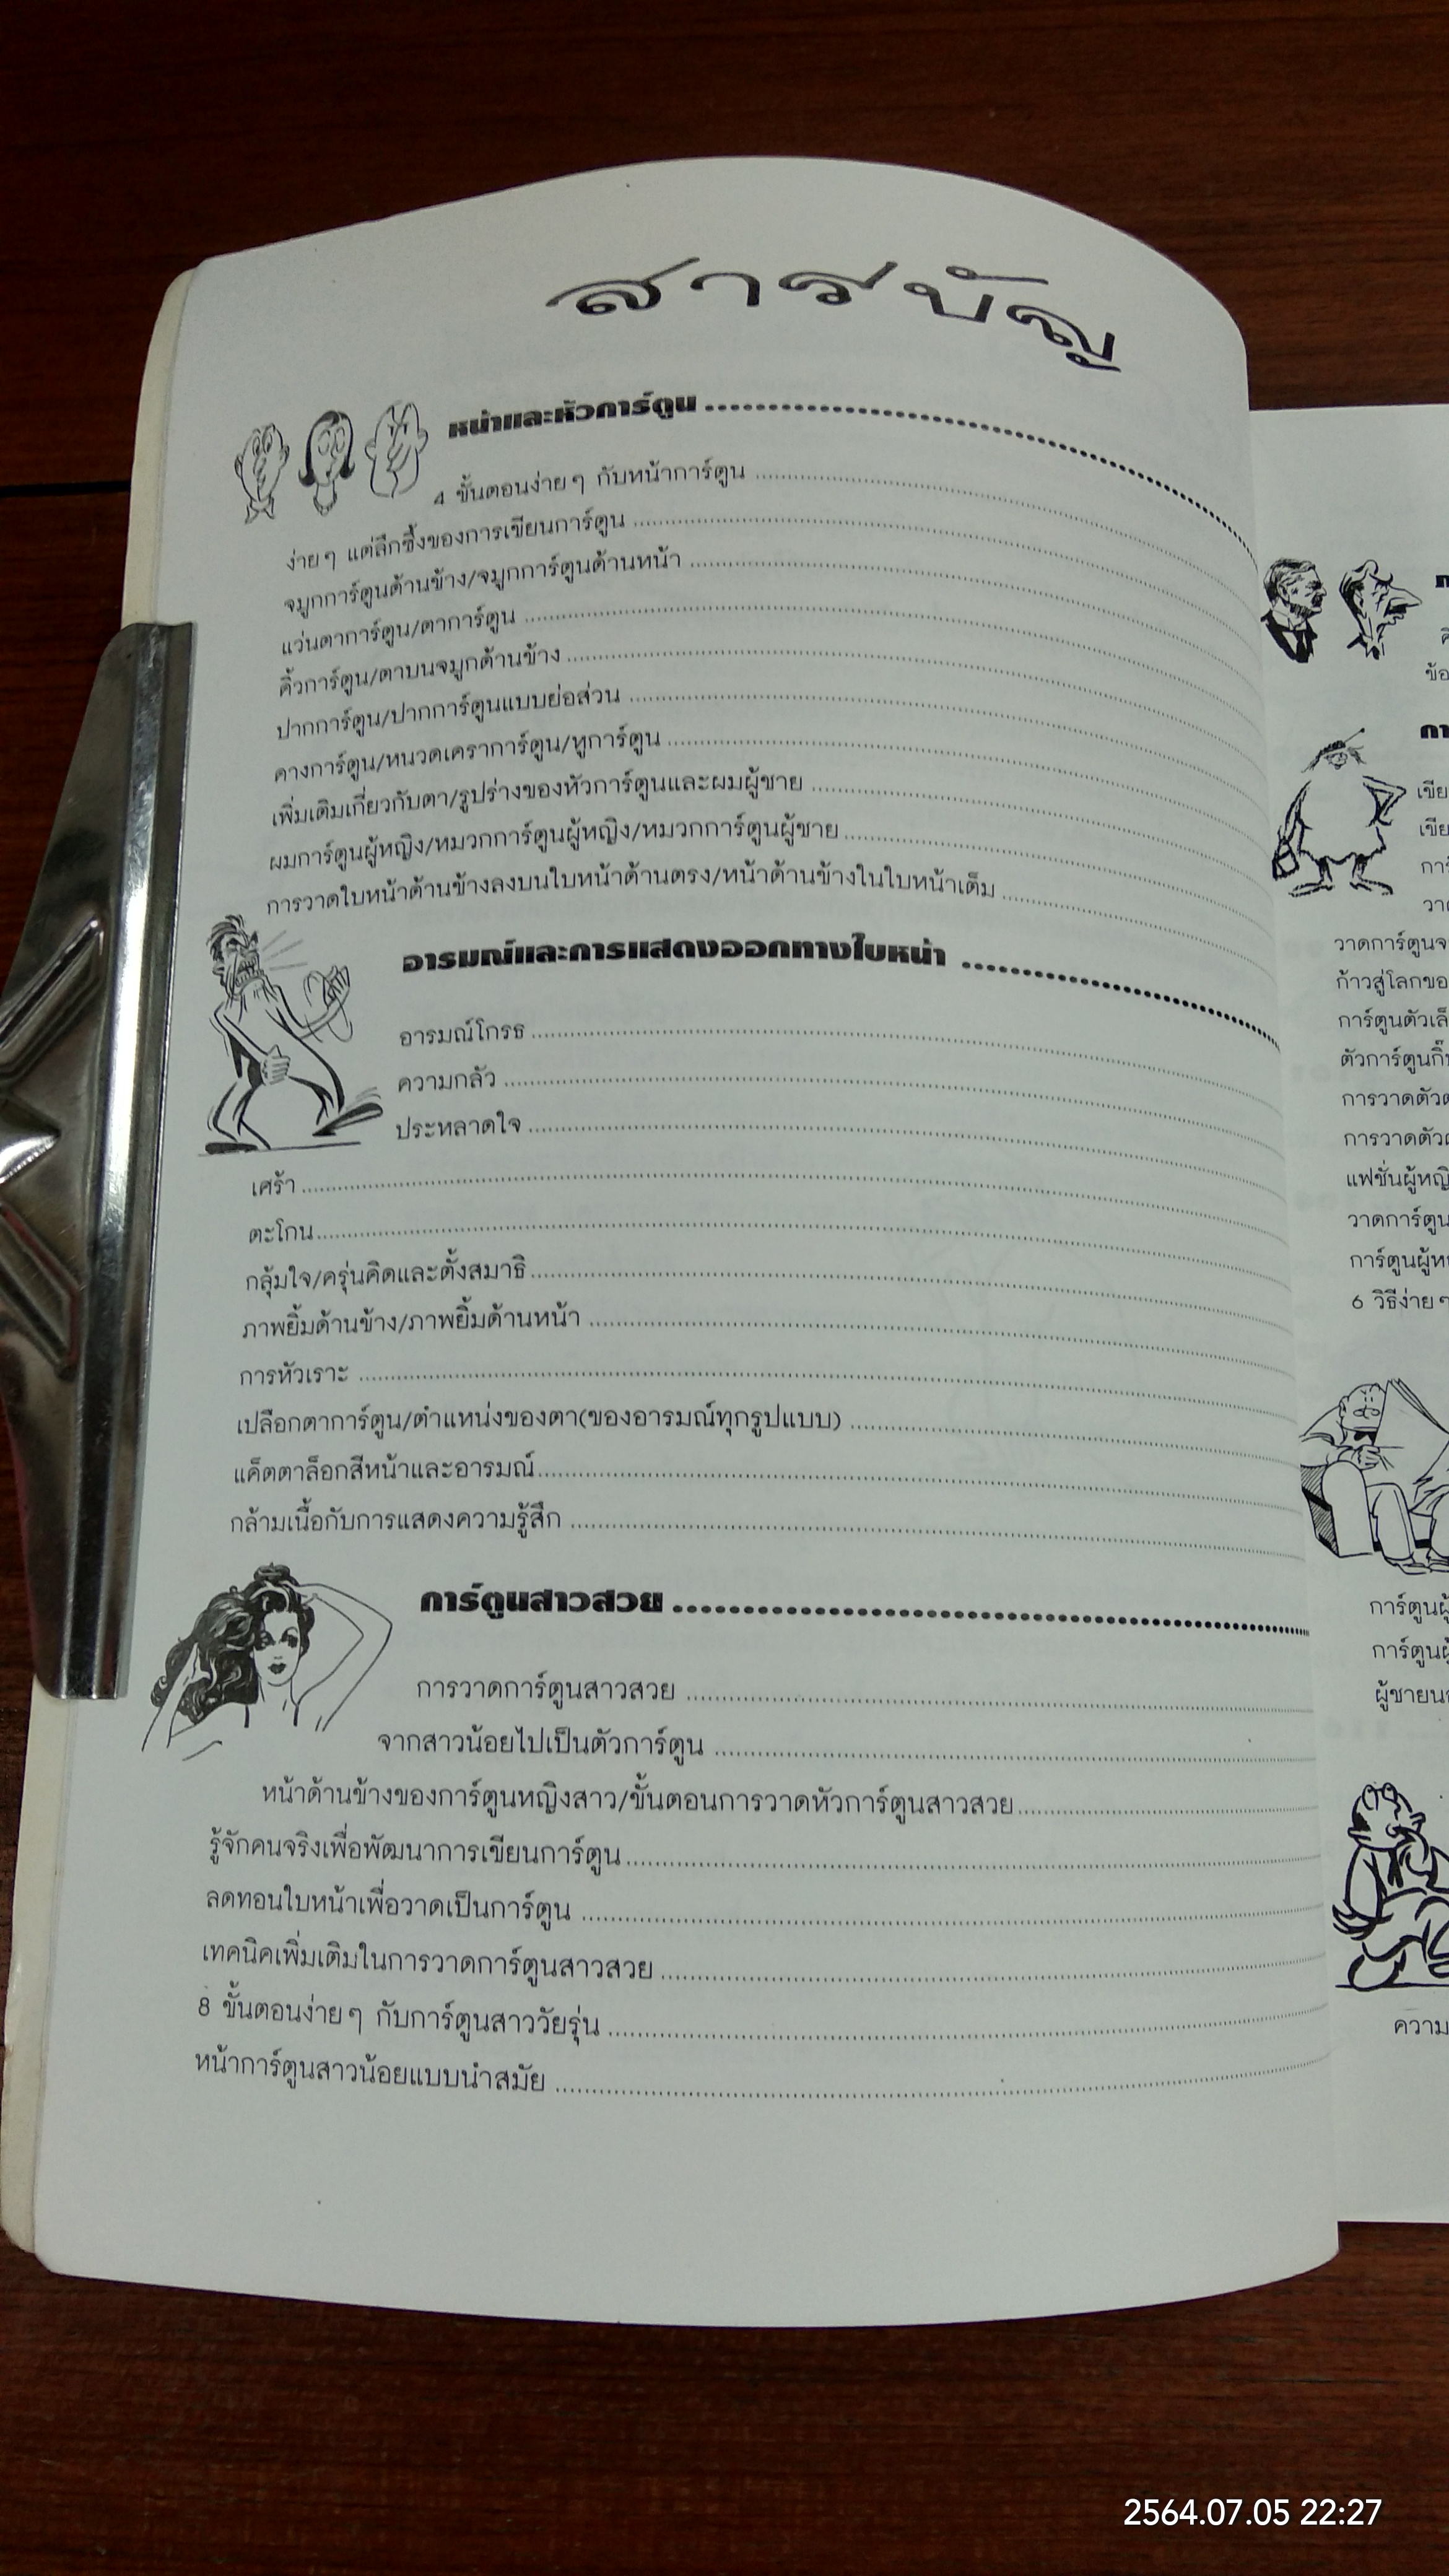 สารบัญ
หน้าและหัวการ์ตูน
4 ขั้นตอนง่ายๆ กับหน้าการ์ตูน
ง่ายๆ แต่ลึกซึ้งของการเขียนการ์ตูน
จมูกการ์ตูนด้านข้าง/จมูกการ์ตูนด้านหน้า
แว่นตาการ์ตูน/ตาการ์ตูน
คิ้วการ์ตูน/ตาบนจมูกด้านข้าง
ปากการ์ตูน/ปากการ์ตูนแบบย่อส่วน
คางการ์ตูน/หนวดเคราการ์ตูน/หูการ์ตูน
เพิ่มเติมเกี่ยวกับตา/รูปร่างของหัวการ์ตูนและผมผู้ชาย
ผมการ์ตูนผู้หญิง/หมวกการ์ตูนผู้หญิง/หมวกการ์ตูนผู้ชาย
การวาดใบหน้าด้านข้างลงบนใบหน้าด้านตรง/หน้าด้านข้างในใบหน้าเต็ม
อารมณ์และการแสดงออกทางใบหน้า
อารมณ์โกรธ
ความกลัว
ประหลาดใจ
เศร้า
ตะโกน
กลุ้มใจ/ครุ่นคิดและตั้งสมาธิ
ภาพยิ้มด้านข้าง/ภาพยิ้มด้านหน้า
การหัวเราะ
เปลือกตาการ์ตูน/ตำแหน่งของตา(ของอารมณ์ทุกรูปแบบ)
แค็ตตาล็อกสีหน้าและอารมณ์
กล้ามเนื้อกับการแสดงความรู้สึก
การ์ตูนสาวสวย
การวาดการ์ตูนสาวสวย
จากสาวน้อยไปเป็นตัวการ์ตูน
หน้าด้านข้างของการ์ตูนหญิงสาว/ขั้นตอนการวาดหัวการ์ตูนสาวสวย
รู้จักคนจริงเพื่อพัฒนาการเขียนการ์ตูน
ลดทอนใบหน้าเพื่อวาดเป็นการ์ตูน
เทคนิคเพิ่มเติมในการวาดการ์ตูนสาวสวย
8 ขั้นตอนง่ายๆ กับการ์ตูนสาววัยรุ่น
หน้าการ์ตูนสาวน้อยแบบนำสมัย
ข้อ
กา
เขีย
เขีย
การ์
วาด
วาดการ์ตูนจ
ก้าวสู่โลกขอ
การ์ตูนตัวเล็
ตัวการ์ตูนกิ๊
การวาดตัว
การวาดตัว
แฟชั่นผู้หญิ
วาดการ์ตูน
การ์ตูนผู้ห
6 วิธีง่ายๆ
การ์ตูนผู้
การ์ตูนผู้
ผู้ชายน
ความ
2564.07.05 22:27